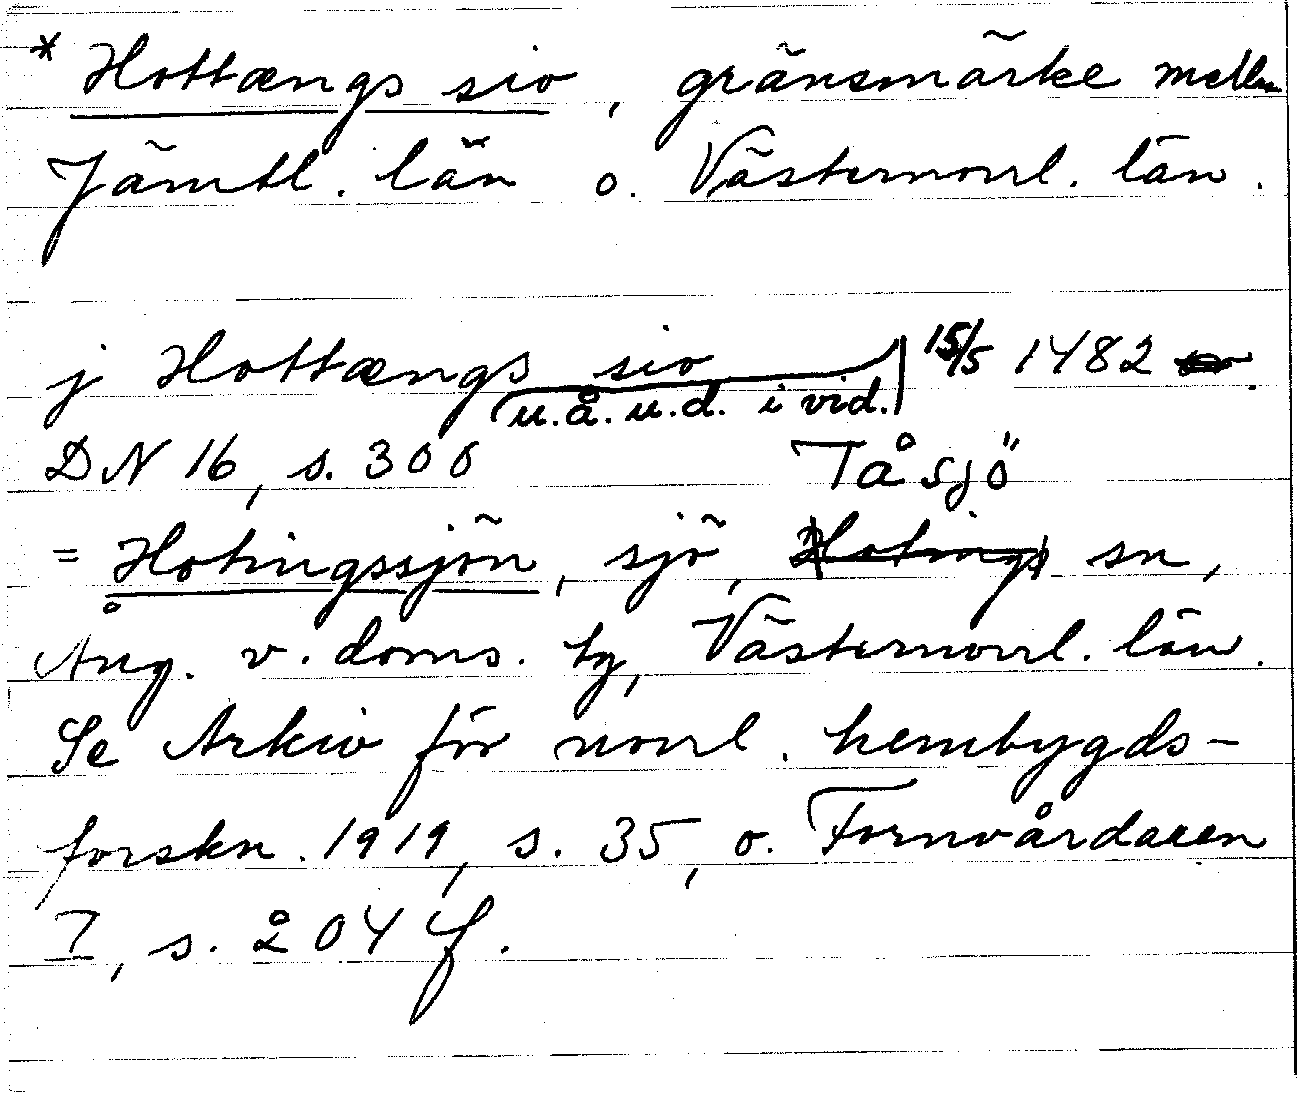 * Hottængs sio, gränsmärke mellan
Jämtl. län o. Västernorrl. län.
j Hottængs sio 15/5 1482
u.å.u.d. i vid.
DN 16, s. 300
Tåsjö
= Hotingssjön, sjö, Hotings sn,
Ång. v. doms. tg, Västernorrl. län.
Se Arkiv för norrl. hembygds-
forskn. 1919, s. 35, o. Fornvårdaren
I, s. 204 f.